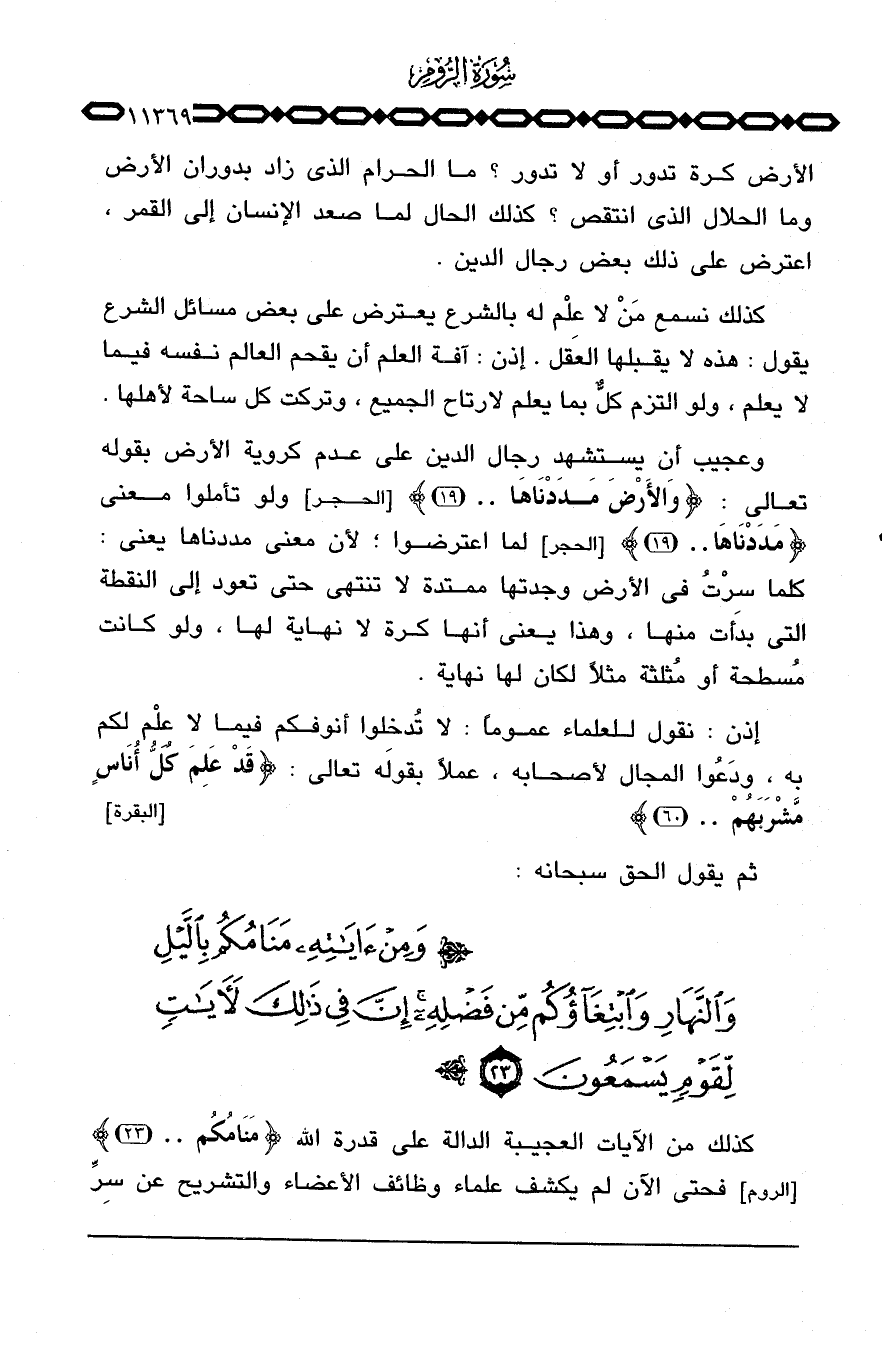 سُورَةُ الرُّومِ
١١٣٦٩
الأرض كرة تدور أو لا تدور ؟ ما الحرام الذى زاد بدوران الأرض
وما الحلال الذى انتقص ؟ كذلك الحال لما صعد الإنسان إلى القمر ،
اعترض على ذلك بعض رجال الدين .
كذلك نسمع مَنْ لا علْم له بالشرع يعترض على بعض مسائل الشرع
يقول : هذه لا يقبلها العقل . إذن : آفة العلم أن يقحم العالم نفسه فيما
لا يعلم ، ولو التزم كلٌّ بما يعلم لارتاح الجميع ، وتركت كل ساحة لأهلها .
وعجيب أن يستشهد رجال الدين على عدم كروية الأرض بقوله
تعالى : ﴿ وَالأَرْضَ مَدَدْنَاهَا .. (١٩) ﴾ [الحجر] ولو تأملوا معنى
﴿ مَدَدْنَاهَا .. (١٩) ﴾ [الحجر] لما اعترضوا ؛ لأن معنى مددناها يعنى :
كلما سرْتُ فى الأرض وجدتها ممتدة لا تنتهى حتى تعود إلى النقطة
التى بدأت منها ، وهذا يعنى أنها كرة لا نهاية لها ، ولو كانت
مُسطحة أو مُثلثة مثلاً لكان لها نهاية .
إذن : نقول للعلماء عموماً : لا تُدخلوا أنوفكم فيما لا علْم لكم
به ، ودَعُوا المجال لأصحابه ، عملاً بقوله تعالى : ﴿ قَدْ عَلِمَ كُلُّ أُنَاسٍ
مَّشْرَبَهُمْ .. (٦٠) ﴾ [البقرة]
ثم يقول الحق سبحانه :
﴿ وَمِنْ ءَايَٰتِهِۦ مَنَامُكُم بِٱلَّيْلِ
وَٱلنَّهَارِ وَٱبْتِغَآؤُكُم مِّن فَضْلِهِۦٓ ۚ إِنَّ فِى ذَٰلِكَ لَأَيَٰتٍ
لِّقَوْمٍ يَسْمَعُونَ (٢٣) ﴾
كذلك من الآيات العجيبة الدالة على قدرة الله ﴿ مَنَامُكُم .. (٢٣) ﴾
[الروم] فحتى الآن لم يكشف علماء وظائف الأعضاء والتشريح عن سِرِّ